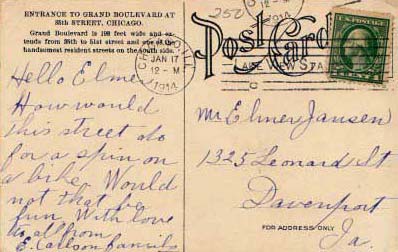 ENTRANCE TO GRAND BOULEVARD AT
35th STREET, CHICAGO.
Grand Boulevard is 198 feet wide and ex-
tends from 35th to 51st street and one of the
handsomest resident streets on the south side.
Hello Elmer
How would
this street do
for a spin on
a bike. Would
not that be
fun. With love
to all from
E. Carlson family
250
Post Card
CHICAGO, ILL
JAN 17
12 - M
1914
12 - M
1914
STA
Mr Elmer Jansen
1325 Leonard St
Davenport
FOR ADDRESS ONLY
Ia.